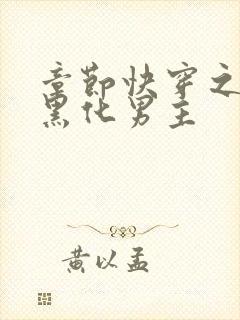 章节快穿之
黑化男主
黄以孟